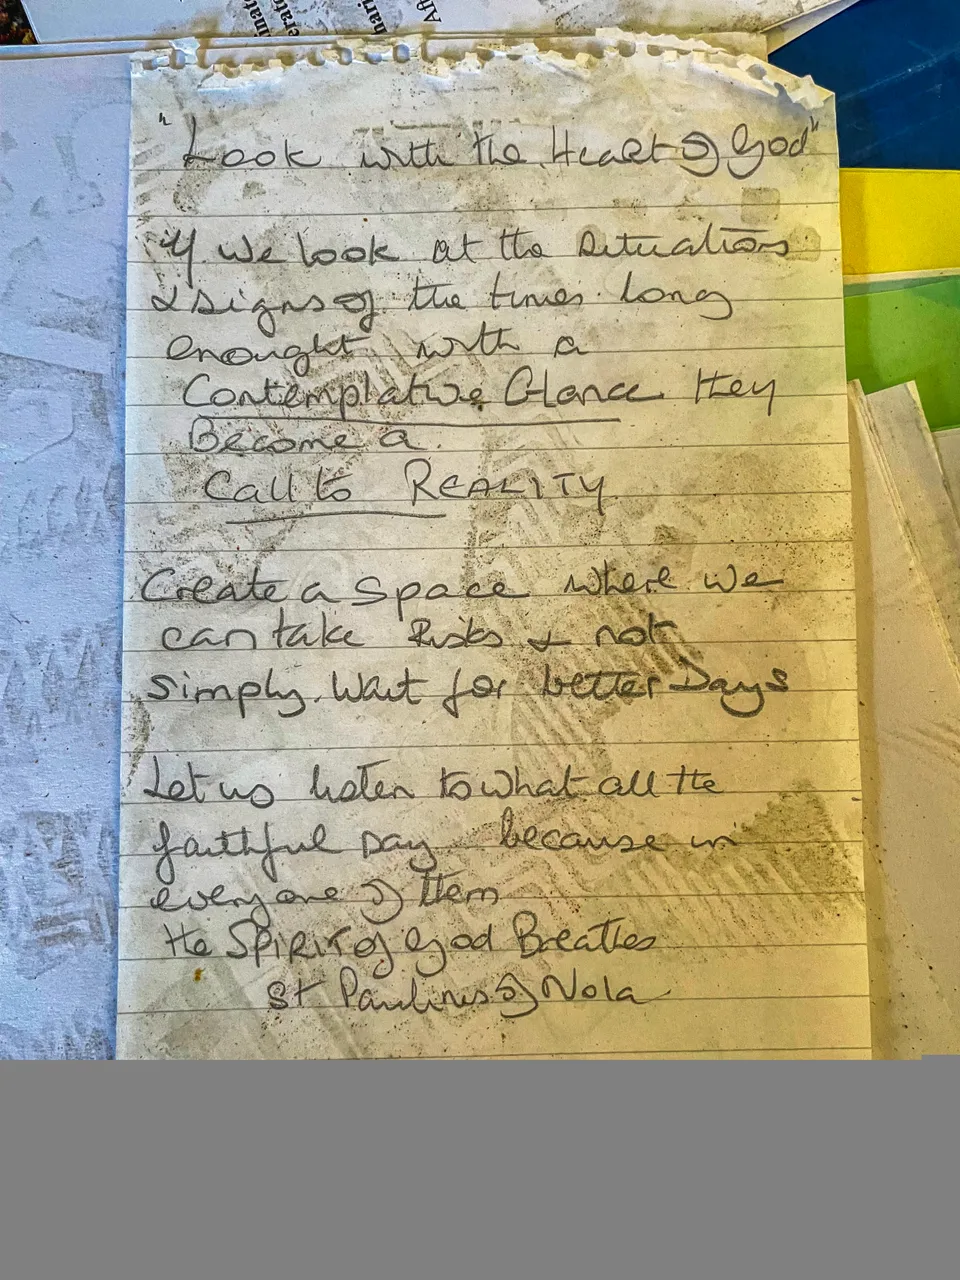 inato
erato
hari
Aft
"Look with the Heart of God"
if we look at the situations
& signs of the times long
enought with a
Contemplative Glance they
Become a
Call to REALITY
Create a space where we
can take Risks & not
simply Wait for better Days
Let us listen to what all the
faithful say because in
everyone of them
the SPIRIT of God Breathes
St Paulinus of Nola